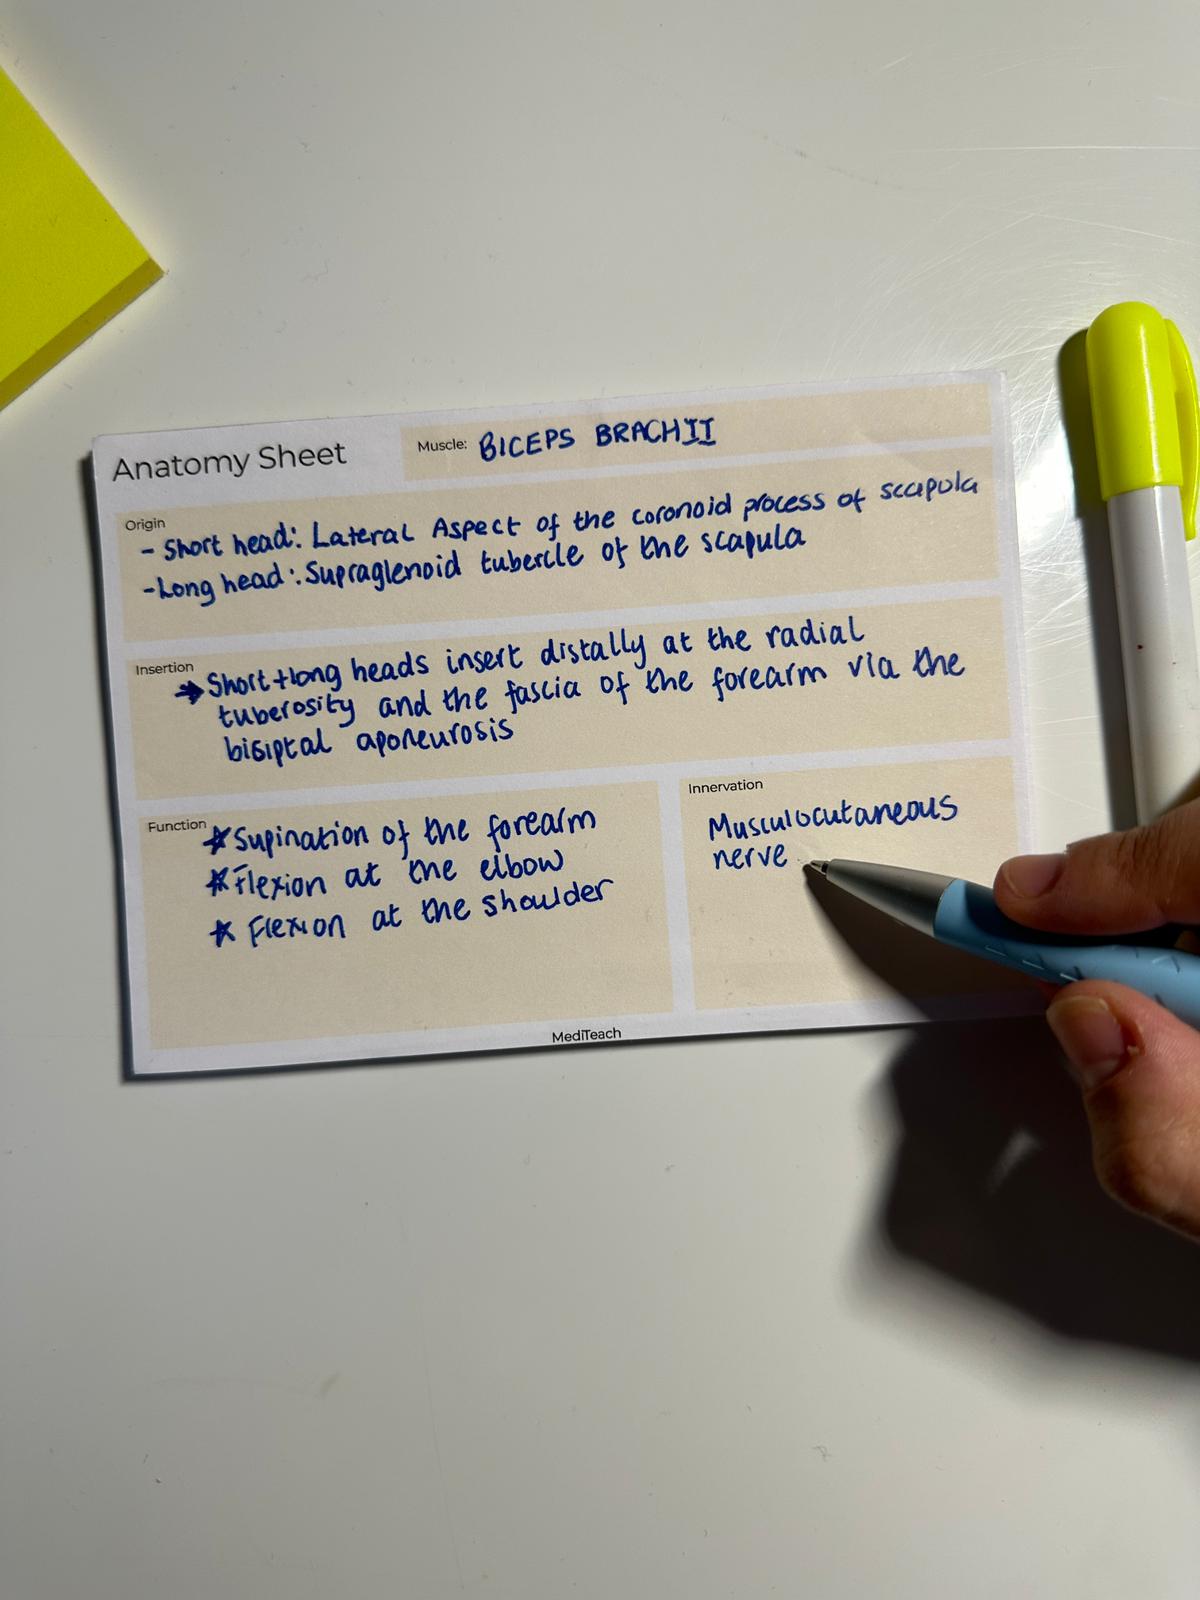 Anatomy Sheet
Muscle: BICEPS BRACHII
Origin
- Short head: Lateral Aspect of the coronoid process of scapula
- Long head: Supraglenoid tubercle of the scapula
Insertion
→ Short + long heads insert distally at the radial
tuberosity and the fascia of the forearm via the
bisiptal aponeurosis
Function
* Supination of the forearm
* Flexion at the elbow
* Flexion at the shoulder
Innervation
Musculocutaneous
nerve
MediTeach